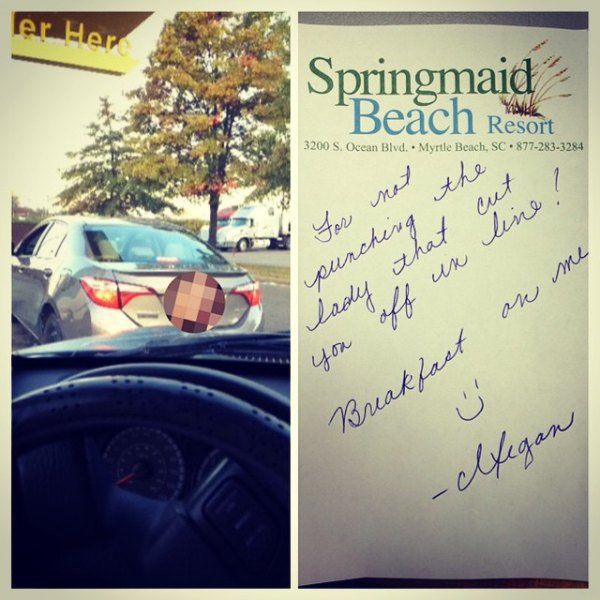 er Here
Springmaid
Beach Resort
3200 S. Ocean Blvd. • Myrtle Beach, SC • 877-283-3284
For not
punching the
lady that cut
you off in line!
Breakfast on me
:)
- Megan